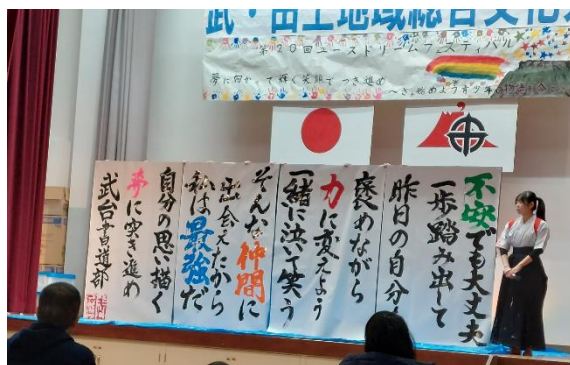 武・田上地域総合文化
第20回ユースドリームフェスティバル
夢に向かって輝く笑顔でつき進め
〜さぁ始めよう青少年の物語を
不安でも大丈夫
一歩踏み出して
昨日の自分も
褒めながら
力に変えよう
一緒に泣いて笑う
そんな仲間に
会えたから
私は最強だ
自分の思い描く
夢に突き進め
武台書道部